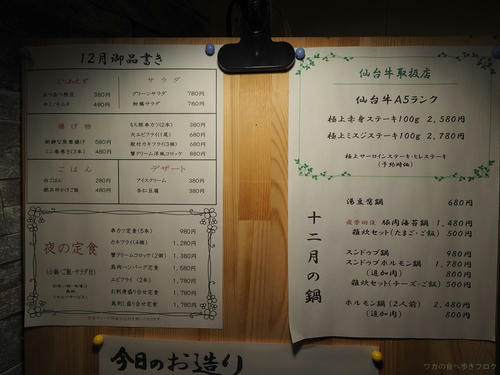 12月御品書き
とりあえず
380円
480円
サラダ
グリーンサラダ 780円
760円
揚げ物
580円
ミニ春巻き(3本) 480円
もち豚串カツ(2本) 380円
大エビフライ(1尾) 680円
殻付カキフライ(3個) 680円
蟹クリーム洋風コロッケ 880円
ごはん
白ごはん 280円
680円
デザート
アイスクリーム 380円
杏仁豆腐 380円
夜の定食
(小鉢・ご飯・サラダ付)
串カツ定食(5本) 980円
カキフライ(4個) 1,280円
蟹クリームコロッケ(2個) 1,380円
馬肉ハンバーグ定食 1,580円
エビフライ(2本) 1,780円
お刺身盛り合せ定食 1,780円
馬刺し盛り合せ定食 1,780円
仙台牛取扱店
仙台牛A5ランク
極上赤身ステーキ100g 2,580円
極上ミスジステーキ100g 2,780円
極上サーロインステーキ・ヒレステーキ
(予約時価)
十二月の鍋
湯豆腐鍋 680円
疲労回復 豚肉海苔鍋 1,480円
雑炊セット(たまご・ご飯) 500円
スンドゥブ鍋 980円
スンドゥブホルモン鍋 1,780円
(追加肉) 800円
雑炊セット(チーズ・ご飯) 500円
ホルモン鍋(2人前) 2,480円
(追加肉) 800円
今日のお造り
ワカの食べ歩きブログ